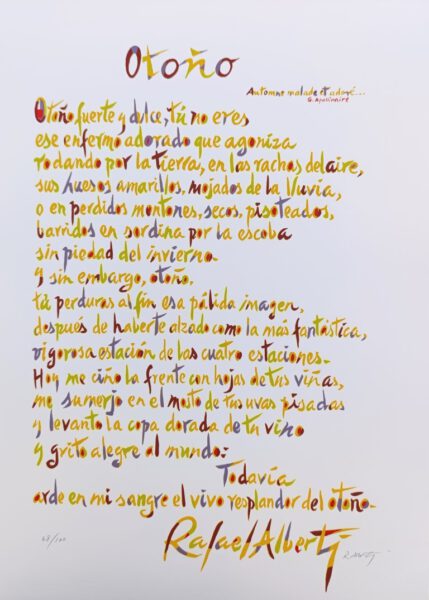 Otoño
Automne malade et adoré...
G. Apollinaire
Otoño fuerte y dulce, tú no eres
ese enfermo adorado que agoniza
rodando por la tierra, en las rachas del aire,
sus huesos amarillos, mojados de la lluvia,
o en perdidos montones, secos, pisoteados,
barridos en sordina por la escoba
sin piedad del invierno.
Y sin embargo, otoño,
tú perduras al fin esa pálida imagen,
después de haberte alzado como la más fantástica,
vigorosa estación de las cuatro estaciones.
Hoy me ciño la frente con hojas de tus viñas,
me sumerjo en el mosto de tus uvas pisadas
y levanto la copa dorada de tu vino
y grito alegre al mundo:
Todavía
arde en mi sangre el vivo resplandor del otoño.
Rafael Alberti